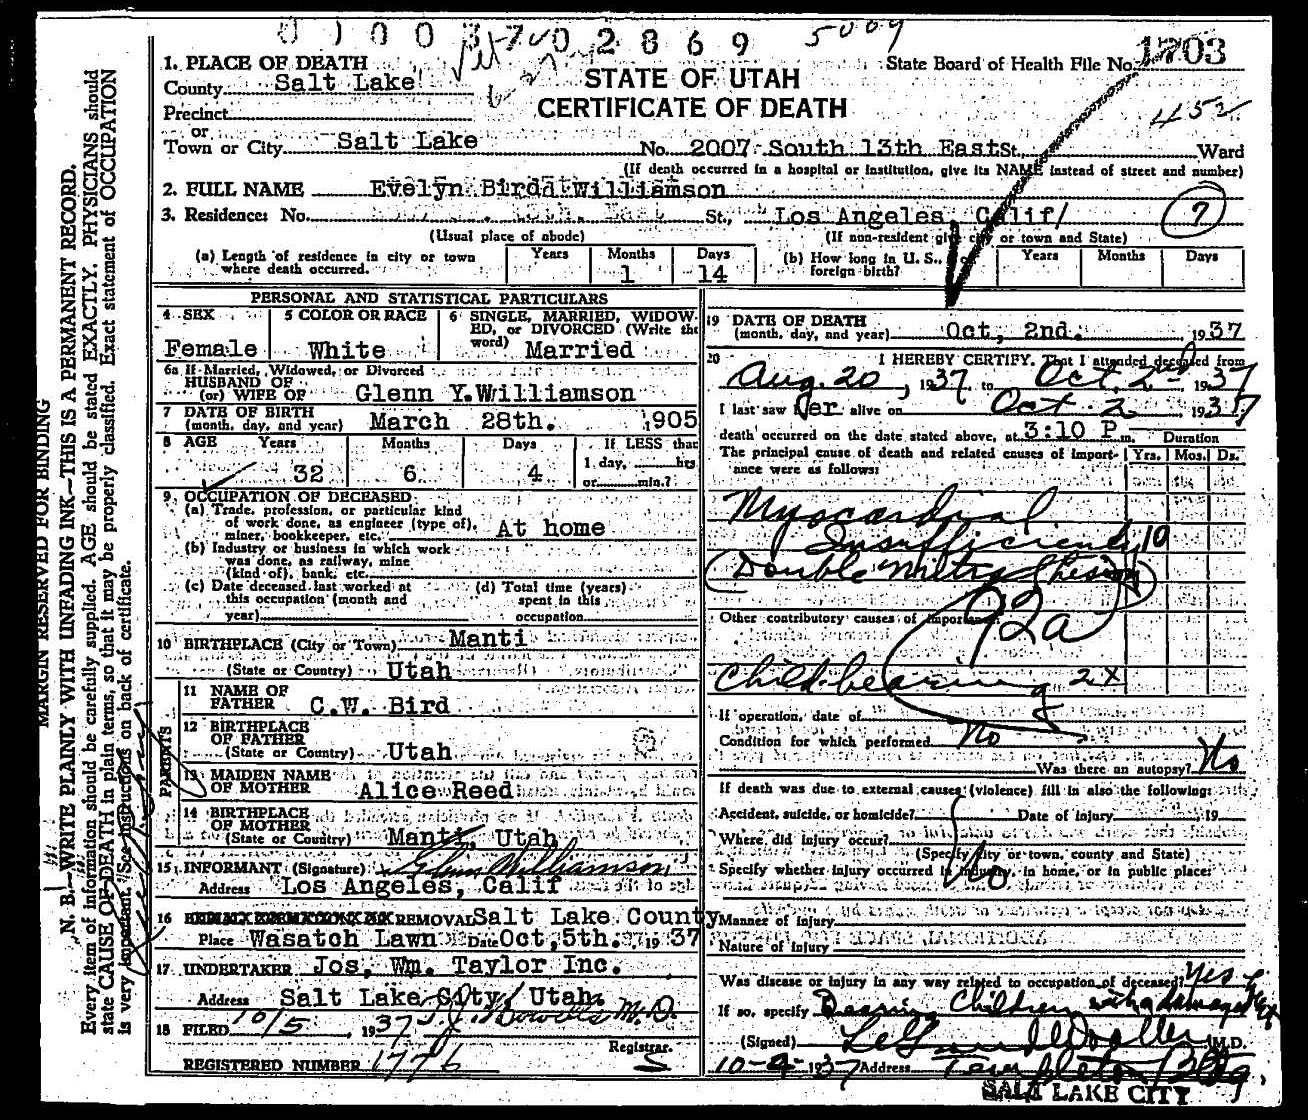 0 1 0 0 3 7 0 2 8 6 9
5009
1. PLACE OF DEATH
State Board of Health File No. 1703
County Salt Lake
STATE OF UTAH
CERTIFICATE OF DEATH
Precinct
452
or
Town or City Salt Lake No. 2007 South 13th East St. Ward
(If death occurred in a hospital or institution, give its NAME instead of street and number)
2. FULL NAME Evelyn Bird Williamson
3. Residence: No. St., Los Angeles, Calif/ 7
(Usual place of abode) (If non-resident give city or town and State)
(a) Length of residence in city or town where death occurred. Years Months 1 Days 14
(b) How long in U. S., foreign birth? Years Months Days
PERSONAL AND STATISTICAL PARTICULARS
4 SEX Female
5 COLOR OR RACE White
6 SINGLE, MARRIED, WIDOWED, or DIVORCED (Write the word) Married
6a If Married, Widowed, or Divorced
HUSBAND OF
(or) WIFE OF Glenn Y. Williamson
7 DATE OF BIRTH
(month, day, and year) March 28th. 1905
8 AGE Years 32 Months 6 Days 4
If LESS than
1 day, hrs
or min.?
9. OCCUPATION OF DECEASED
(a) Trade, profession, or particular kind
of work done, as engineer (type of),
miner, bookkeeper, etc. At home
(b) Industry or business in which work
was done, as railway, mine
(kind of), bank, etc.
(c) Date deceased last worked at
this occupation (month and
year)
(d) Total time (years)
spent in this
occupation
10 BIRTHPLACE (City or Town) Manti
(State or Country) Utah
PARENTS
11 NAME OF
FATHER C.W. Bird
12 BIRTHPLACE
OF FATHER
(State or Country) Utah
13 MAIDEN NAME
OF MOTHER Alice Reed
14 BIRTHPLACE
OF MOTHER
(State or Country) Manti, Utah
15 INFORMANT (Signature) Glenn Williamson
Address Los Angeles, Calif
16 REMOVAL Salt Lake County
Place Wasatch Lawn Date Oct, 5th. 1937
17 UNDERTAKER Jos, Wm. Taylor Inc.
Address Salt Lake City, Utah.
18 FILED 10/5, 1937 M.D.
Registrar.
REGISTERED NUMBER 1776 S
19 DATE OF DEATH
(month, day, and year) Oct, 2nd. 1937
20 I HEREBY CERTIFY, That I attended deceased from
Aug. 20, 1937 to Oct. 2nd 1937
I last saw Her alive on Oct. 2 1937
death occurred on the date stated above, at 3:10 P m. Duration
The principal cause of death and related causes of importance were as follows: Yrs. Mos. Ds.
Myocardial
Insufficiency 10
(Double Mitral Lesion)
92a
Other contributory causes of importance:
Child-bearing 2x
If operation, date of
Condition for which performed No
Was there an autopsy? No
If death was due to external causes (violence) fill in also the following:
Accident, suicide, or homicide? Date of injury 19
Where did injury occur?
(Specify city or town, county and State)
Specify whether injury occurred in industry, in home, or in public place:
No
Manner of Injury
Nature of Injury
Was disease or injury in any way related to occupation of deceased? Yes
If so, specify Bearing Children with a damaged
(Signed) M.D.
10-4-1937 Address Templeton Bldg,
SALT LAKE CITY
MARGIN RESERVED FOR BINDING
N. B.—WRITE PLAINLY WITH UNFADING INK—THIS IS A PERMANENT RECORD.
Every item of information should be carefully supplied. AGE should be stated EXACTLY. PHYSICIANS should
state CAUSE OF DEATH in plain terms, so that it may be properly classified. Exact statement of OCCUPATION
is very important. (See instructions on back of certificate.